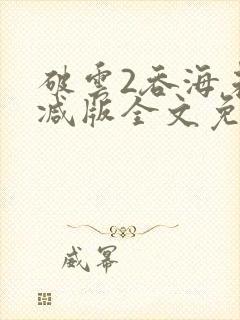 破雲2吞海
减版全文免
威幂